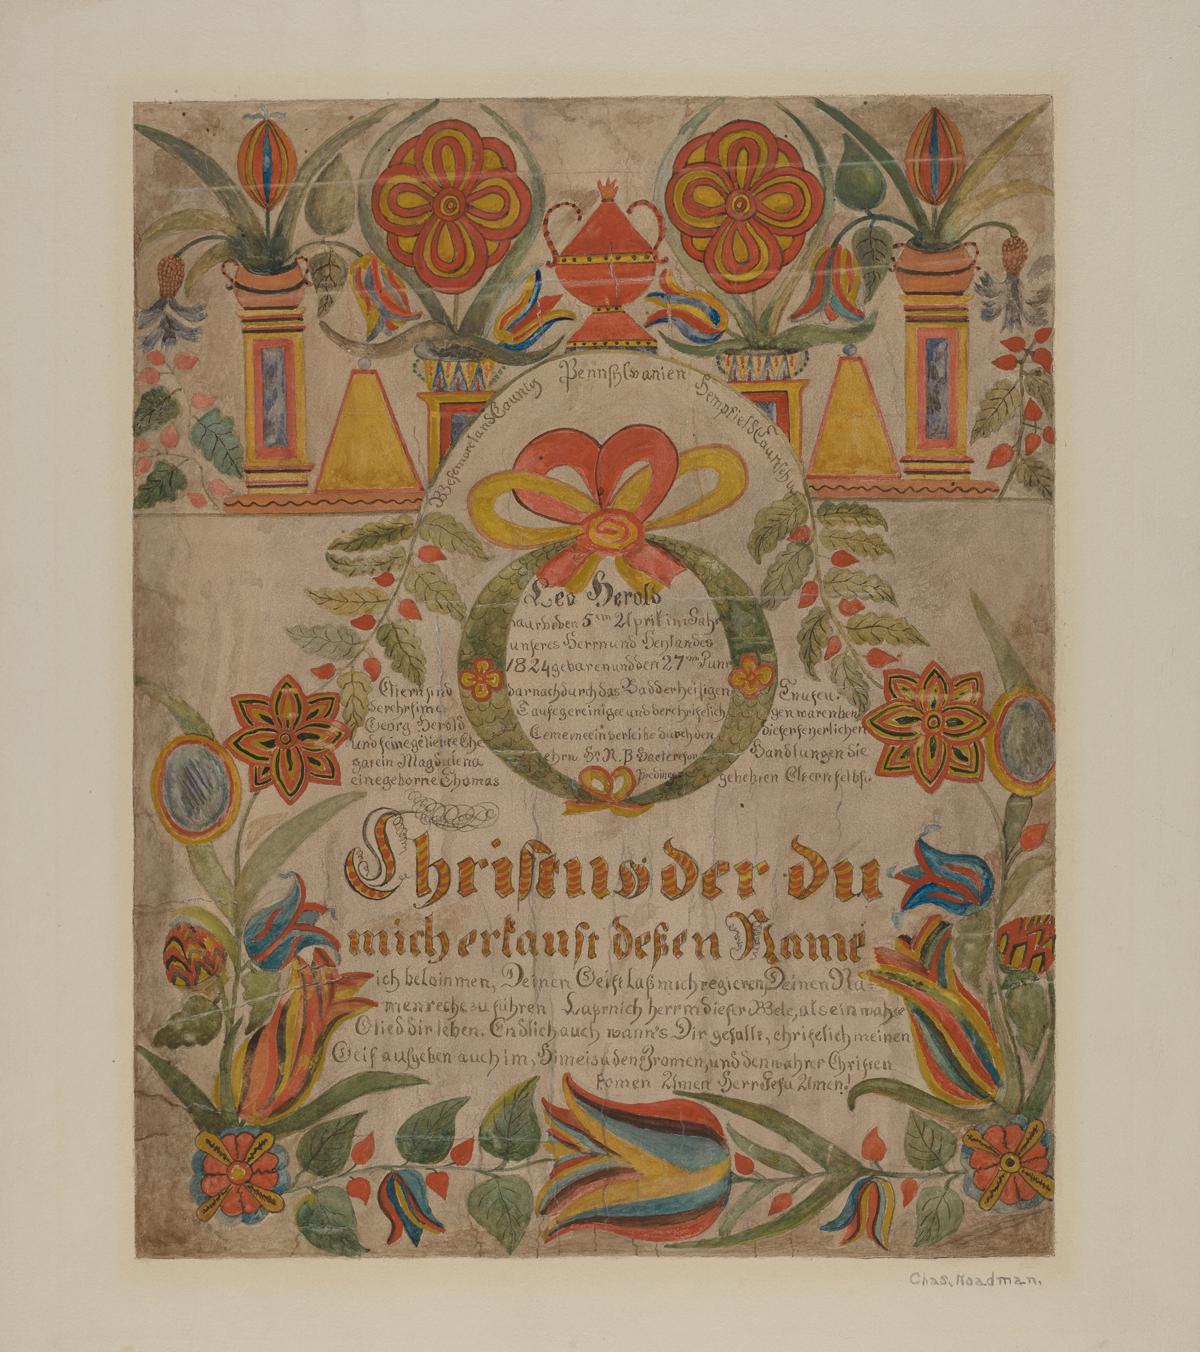 Westmoreland Caunty Pennsylvanien Hempfield Taunschip
Leo Herold
den 5ten April im Jahr
unseres Herrn und Heylandes
1824 gebaren und den 27ten Juni
darnach durch das Bad der heiligen
Taufe gereiniget und der chriſtlich
durch den
Hr. R. B
Eltern sind
Georg Herold
und seine geliebte Ehe
gatin Magdalena
eine geborne Thomas
Taufzeu-
gen waren ben
dieser feyerlichen
Handlungen die
Eltern selbst.
Christus der du
mich erkauft deßen Name
ich bekommen, Deinen Geist Laß mich regieren, Deinen Na-
men recht zu führen Laß mich herr in dieser Welt, als ein wahr
Glied dir leben. Endlich auch wann's Dir gefallt, christlich meinen
Geist aufgeben auch im und den wahrer Christen
komen Amen Herr Jesu Amen!
Chas. Moadman.